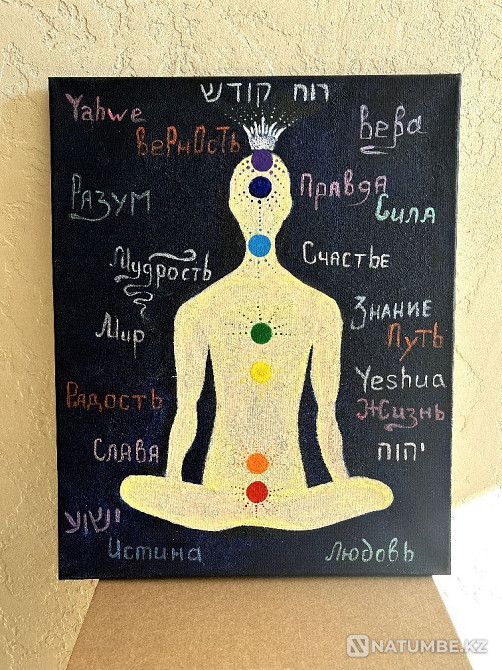 רוח קודש
Yahwe
Верность
Вера
Разум
Правда
Сила
Мудрость
Счастье
Мир
Знание
Путь
Радость
Yeshua
Жизнь
Слава
יהוה
ישוע
Истина
Любовь
NATUMBE.KZ